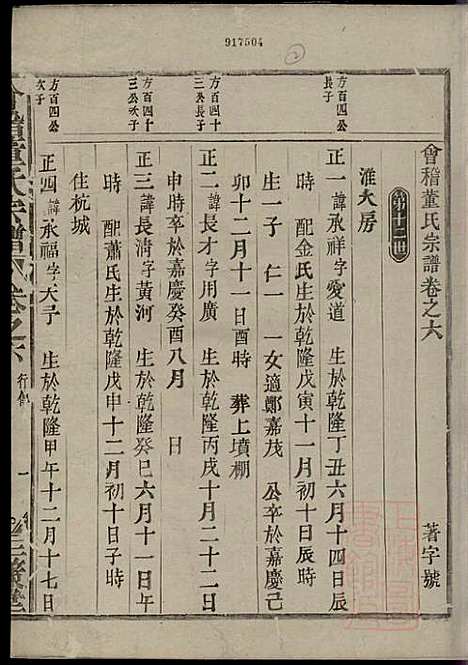 917504
2
會稽董氏宗譜卷之六
著字號
第十二世
淮大房
方百四公長子
正一諱承祥字愛道 生於乾隆丁丑六月十四日辰
時 配金氏生於乾隆戊寅十一月初十日辰時
生一子 仁一 一女適鄭嘉茂 公卒於嘉慶己
卯十二月十一日酉時 葬上墳棚
方百四十二公長子
正二諱長才字用廣 生於乾隆丙戌十月二十二日
申時卒於嘉慶癸酉八月 日
方百四十三公次子
正三諱長清字黃河 生於乾隆癸巳六月十一日午
時 配蕭氏生於乾隆戊申十二月初十日子時
住杭城
方百四公次子
正四諱承福字天子 生於乾隆甲午十二月十七日
會稽董氏宗譜
卷之六
行
一